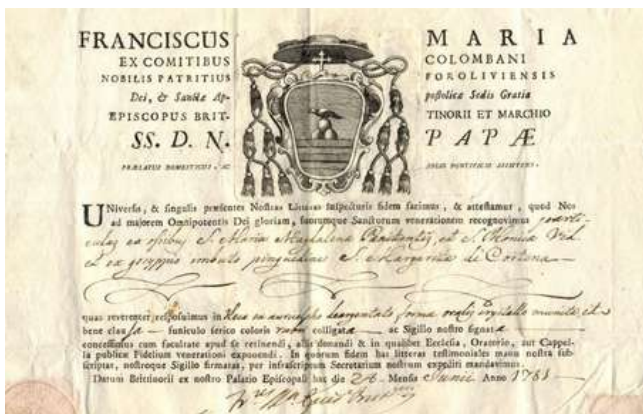 FRANCISCUS MARIA
EX COMITIBUS COLOMBANI
NOBILIS PATRITIUS FOROLIVIENSIS
Dei, & Sanctæ Ap- postolicæ Sedis Gratia
EPISCOPUS BRIT- TINORII ET MARCHIO
SS. D. N. PAPÆ
PRÆLATUS DOMESTICUS, AC SOLIO PONTIFICIO ASSISTENS.
UNiversis, & singulis præsentes Nostras Litteras inspecturis fidem facimus, & attestamur, quod Nos
ad majorem Omnipotentis Dei gloriam, suorumque Sanctorum venerationem recognovimus particulas
ex ossibus S. Mariæ Magdalenæ Pœnitentis, et S. Monicæ Vid.
et ex gossypio imbuto pinguedine S. Margaritæ de Cortona
quas reverenter reposuimus in theca ex auricalcho deargentato formæ ovalis crystallo munita, et
bene clausa funiculo serico coloris rubri colligata ac Sigillo nostro signata
concessimus cum facultate apud se retinendi, aliis donandi & in qualibet Ecclesia, Oratorio, aut Cappel-
la publicæ Fidelium venerationi exponendi. In quorum fidem has litteras testimoniales manu nostra sub-
scriptas, nostroque Sigillo firmatas, per infrascriptum Secretarium nostrum expediri mandavimus.
Datum Brittinorii ex nostro Palatio Episcopali hac die 26 Mensis Junii Anno 1781